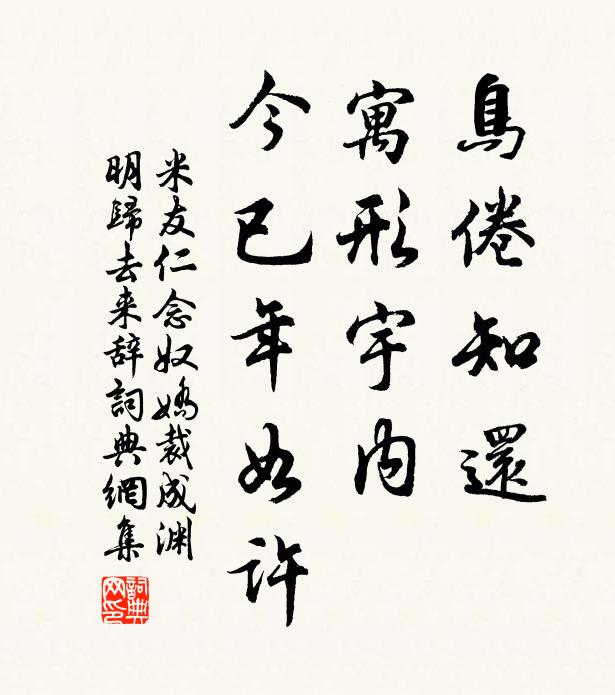 鳥倦知還
寓形宇內
今已年如許
米友仁念奴嬌裁成淵
明歸去来辞詞典網集
詞典
网印